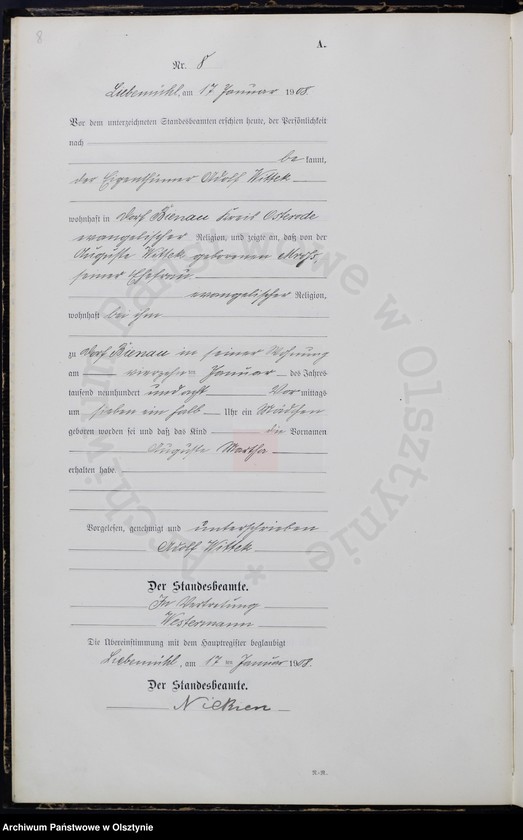 8
A.
Nr. 8
Liebemühl, am 17 Januar 1908.
Vor dem unterzeichneten Standesbeamten erschien heute, der Persönlichkeit
nach
be kannt,
der Eigenthümer Adolf Wittek
wohnhaft in Dorf Bienau Kreis Osterode
evangelischer Religion, und zeigte an, daß von der
Auguste Wittek geborenen
seiner Ehefrau
evangelischer Religion,
wohnhaft bei ihm
zu Dorf Bienau in seiner Wohnung
am vierzehn Januar des Jahres
tausend neunhundert undacht Vor mittags
um sieben ein halb Uhr ein Mädchen
geboren worden sei und daß das Kind die Vornamen
Auguste Martha
erhalten habe.
Vorgelesen, genehmigt und unterschrieben
Adolf Wittek
Der Standesbeamte.
In Vertretung
Westermann
Die Übereinstimmung mit dem Hauptregister beglaubigt
Liebemühl, am 17 ten Januar 1908.
Der Standesbeamte.
R.-R.
Archiwum Państwowe w Olsztynie
* Archiwum Państwowe w Olsztynie